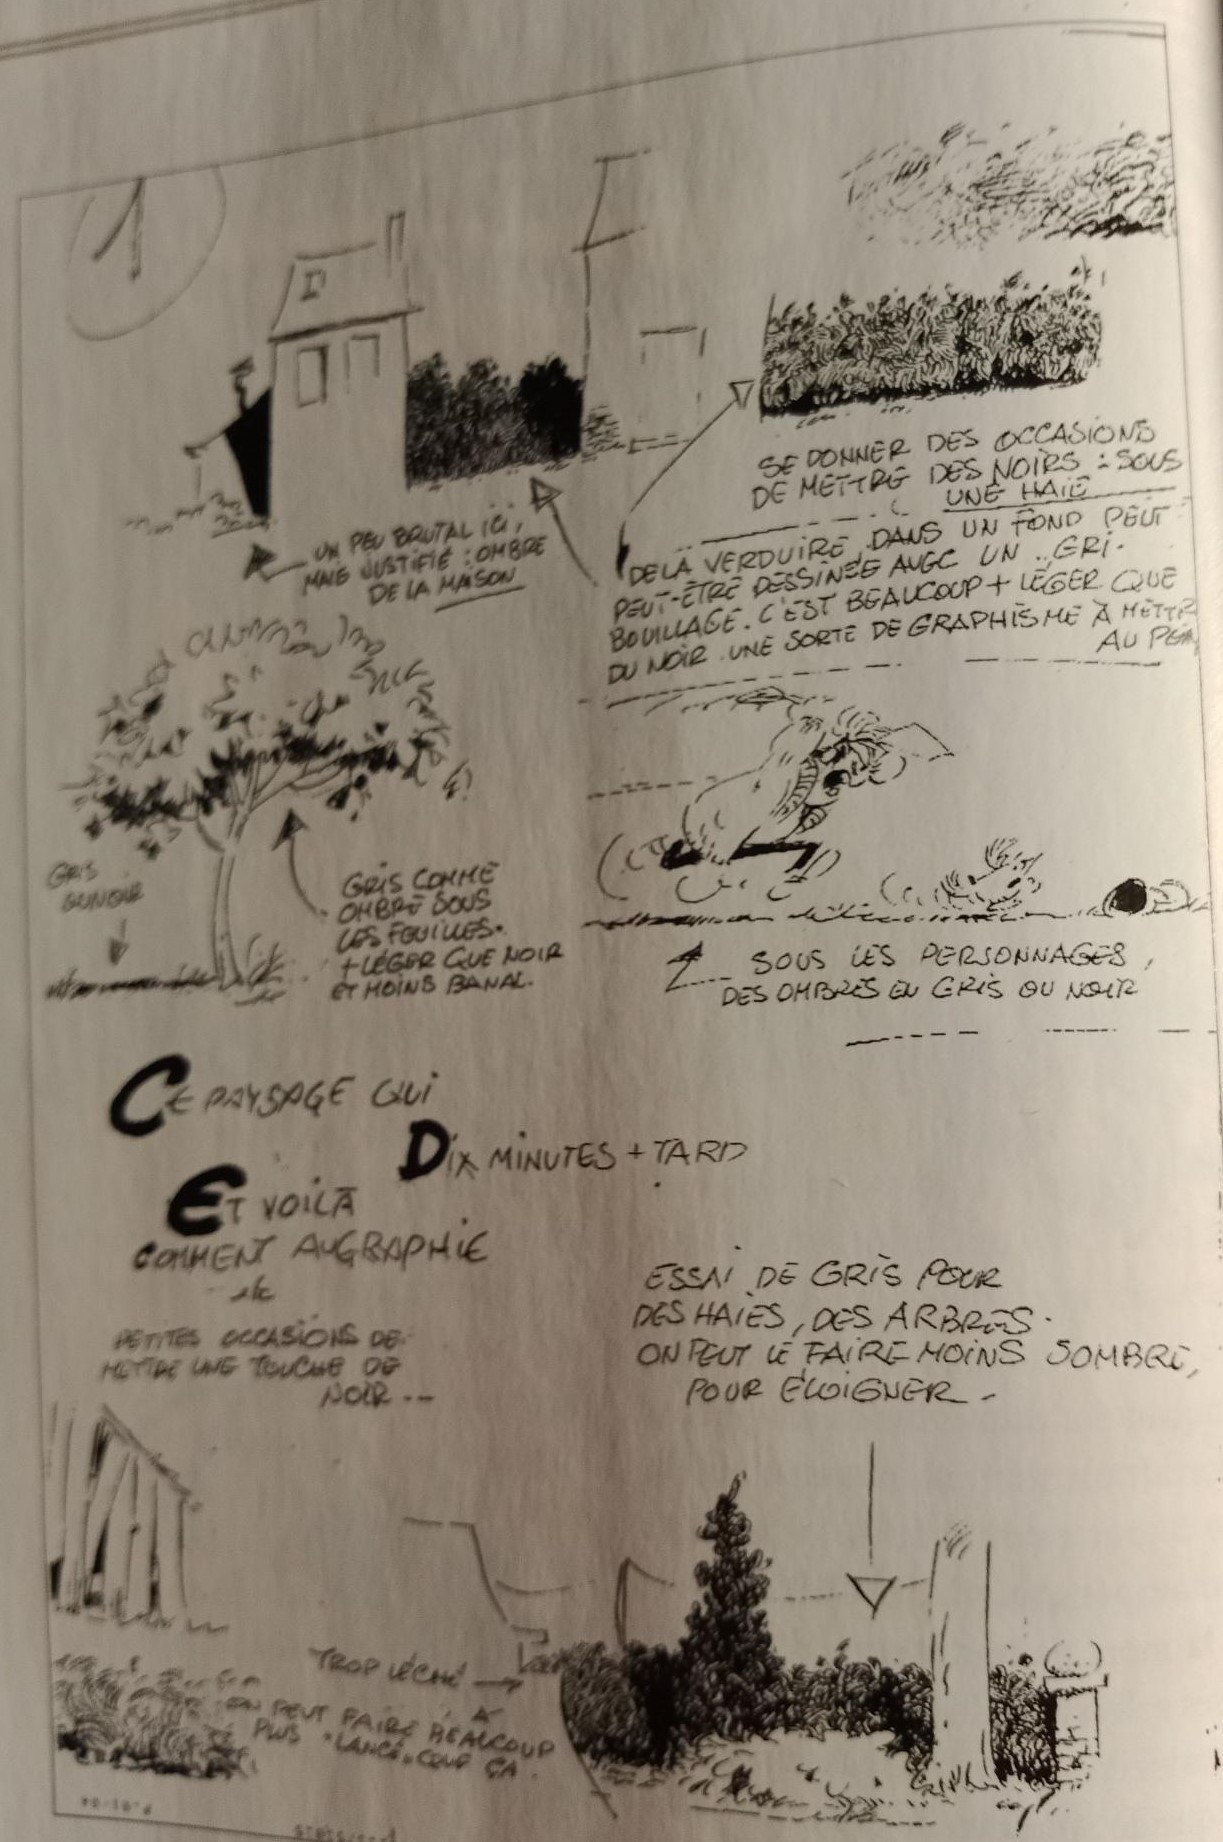 1
SE DONNER DES OCCASIONS
DE METTRE DES NOIRS : SOUS
UNE HAIE
UN PEU BRUTAL ICI,
MAIS JUSTIFIÉ : OMBRE
DE LA MAISON
DE LA VERDURE, DANS UN FOND PEUT
PEUT-ÊTRE DESSINÉE AVEC UN "GRI-
BOUILLAGE. C'EST BEAUCOUP + LÉGER QUE
DU NOIR. UNE SORTE DE GRAPHISME À METTR
AU
GRIS
OU NOIR
GRIS COMME
OMBRE SOUS
LES FEUILLES.
+ LÉGER QUE NOIR
ET MOINS BANAL.
SOUS LES PERSONNAGES,
DES OMBRES EN GRIS OU NOIR
CE PAYSAGE QUI
DIX MINUTES + TARD
ET VOILÀ
COMMENT
PETITES OCCASIONS DE
METTRE UNE TOUCHE DE
NOIR ...
ESSAI DE GRIS POUR
DES HAIES, DES ARBRES.
ON PEUT LE FAIRE MOINS SOMBRE,
POUR ÉLOIGNER -
TROP LÉCHÉ
ON PEUT FAIRE BEAUCOUP
PLUS "LANCÉ" ÇA.